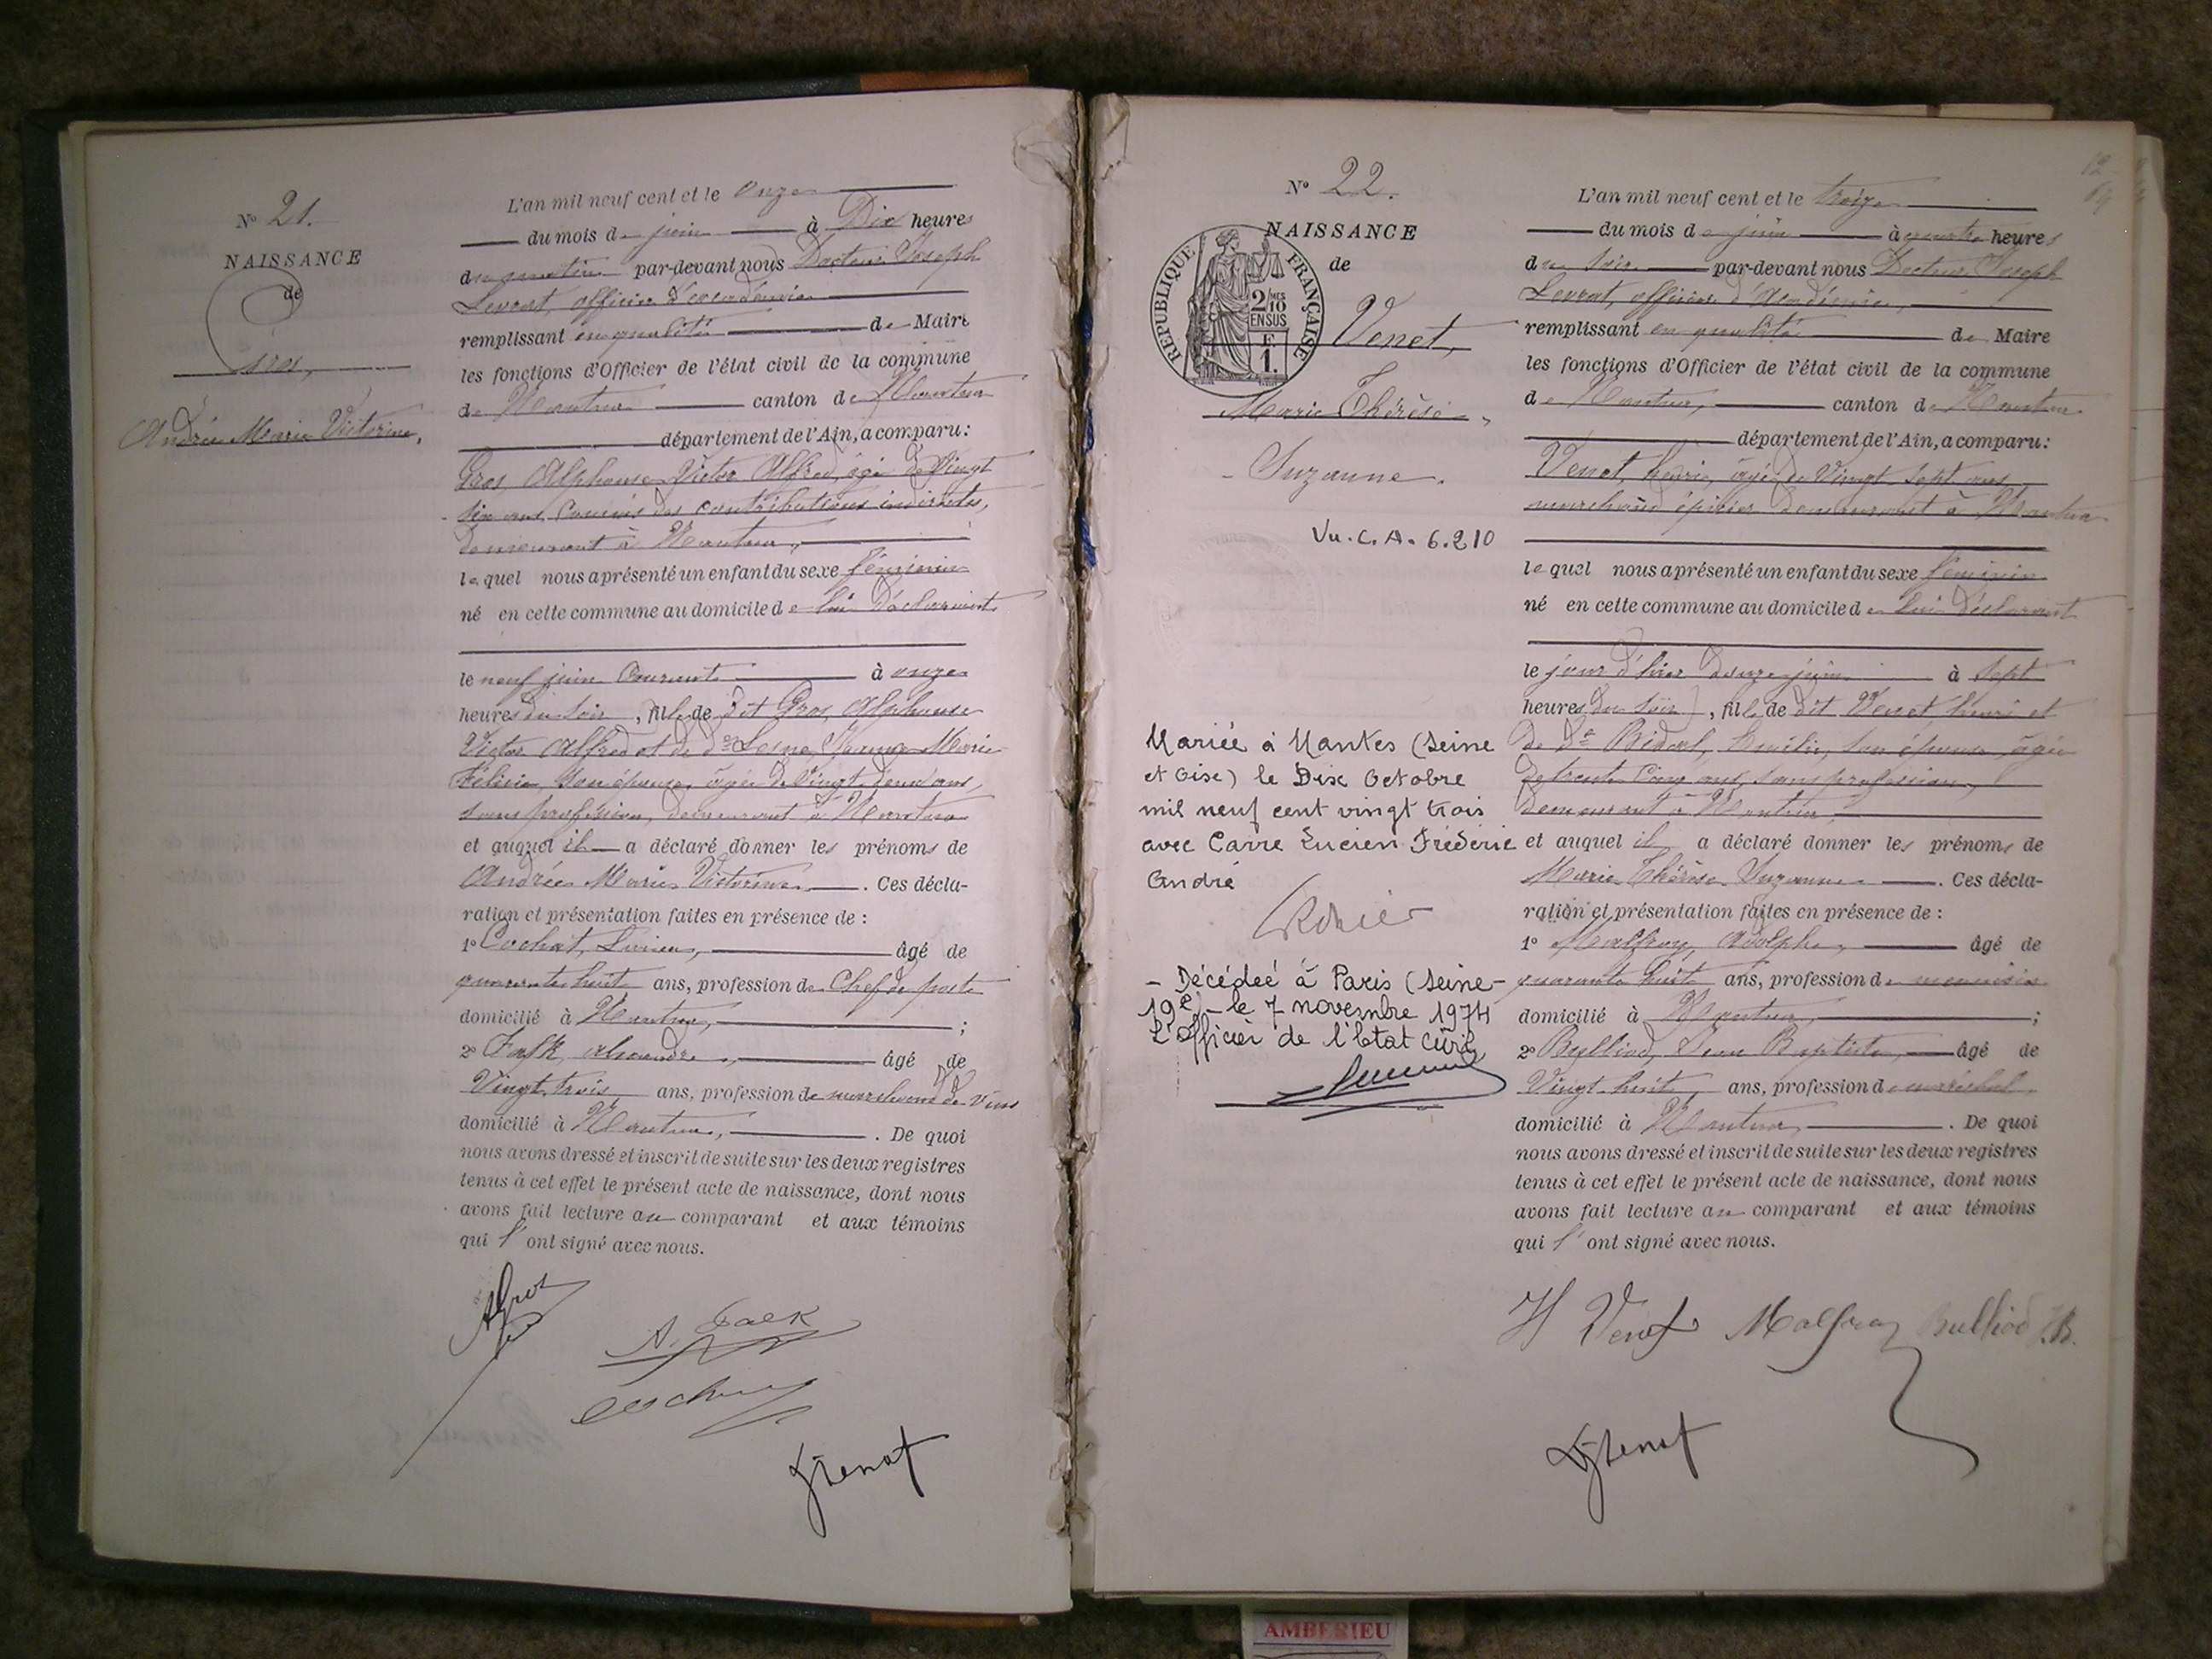 N° 21.
NAISSANCE
de
Gros,
Andrée Marie Victorine,
L'an mil neuf cent et le onze
du mois de juin à Dix heures
du matin par-devant nous Docteur Joseph
Levrat, officier d'académie
remplissant en qualité de Maire
les fonctions d'Officier de l'état civil de la commune
de Nantua canton de Nantua
département de l'Ain, a comparu :
Gros, Alphonse Victor Alfred, âgé de Vingt
six ans, Commis des contributions indirectes,
demeurant à Nantua,
lequel nous a présenté un enfant du sexe féminin
né en cette commune au domicile de lui déclarant
le neuf juin Courant à onze
heures du soir, fille de dit Gros, Alphonse
Victor Alfred et de de Marie
Félicie, son épouse, âgée de Vingt deux ans,
sans profession, demeurant à Nantua
et auquel il a déclaré donner les prénoms de
Andrée Marie Victorine. Ces décla-
ration et présentation faites en présence de :
1° Cochat, âgé de
quarante huit ans, profession de Chef de poste
domicilié à Nantua, ;
2° Falk, alexandre, âgé de
Vingt trois ans, profession de marchand de vins
domicilié à Nantua, . De quoi
nous avons dressé et inscrit de suite sur les deux registres
tenus à cet effet le présent acte de naissance, dont nous
avons fait lecture au comparant et aux témoins
qui l' ont signé avec nous.
AGros
A. Falk
N° 22.
NAISSANCE
de
RÉPUBLIQUE FRANÇAISE
2/10MES
EN SUS
F.
1.
Venet,
Marie Thérèse,
Suzanne.
Vu. C. A. 6.210
Mariée à Mantes (Seine
et Oise) le Dix Octobre
mil neuf cent vingt trois
avec Carre Lucien Frédéric
André
- Décédée à Paris (Seine-
19e) - le 7 novembre 1974
L'Officier de l'Etat Civil
L'an mil neuf cent et le treize
du mois de juin à quatre heures
du soir par-devant nous Docteur Joseph
Levrat, officier d'Académie,
remplissant en qualité de Maire
les fonctions d'Officier de l'état civil de la commune
de Nantua, canton de Nantua
département de l'Ain, a comparu :
Venet, henri, âgé de Vingt sept ans
marchand épicier demeurant à Nantua
lequel nous a présenté un enfant du sexe féminin
né en cette commune au domicile de lui déclarant
le jour d'hier douze juin à sept
heures du soir, fille de dit Venet henri et
de de Emilie, son épouse, âgée
de trente cinq ans, sans profession,
demeurant à Nantua,
et auquel il a déclaré donner les prénoms de
Marie Thérèse Suzanne. Ces décla-
ration et présentation faites en présence de :
1° Malfroy, Adolphe, âgé de
quarante huit ans, profession de menuisier
domicilié à Nantua, ;
2° Bulliod, Jean Baptiste, âgé de
Vingt huit ans, profession de maréchal
domicilié à Nantua, . De quoi
nous avons dressé et inscrit de suite sur les deux registres
tenus à cet effet le présent acte de naissance, dont nous
avons fait lecture au comparant et aux témoins
qui l' ont signé avec nous.
H Venet Malfroy Bulliod J.B.
AMBERIEU